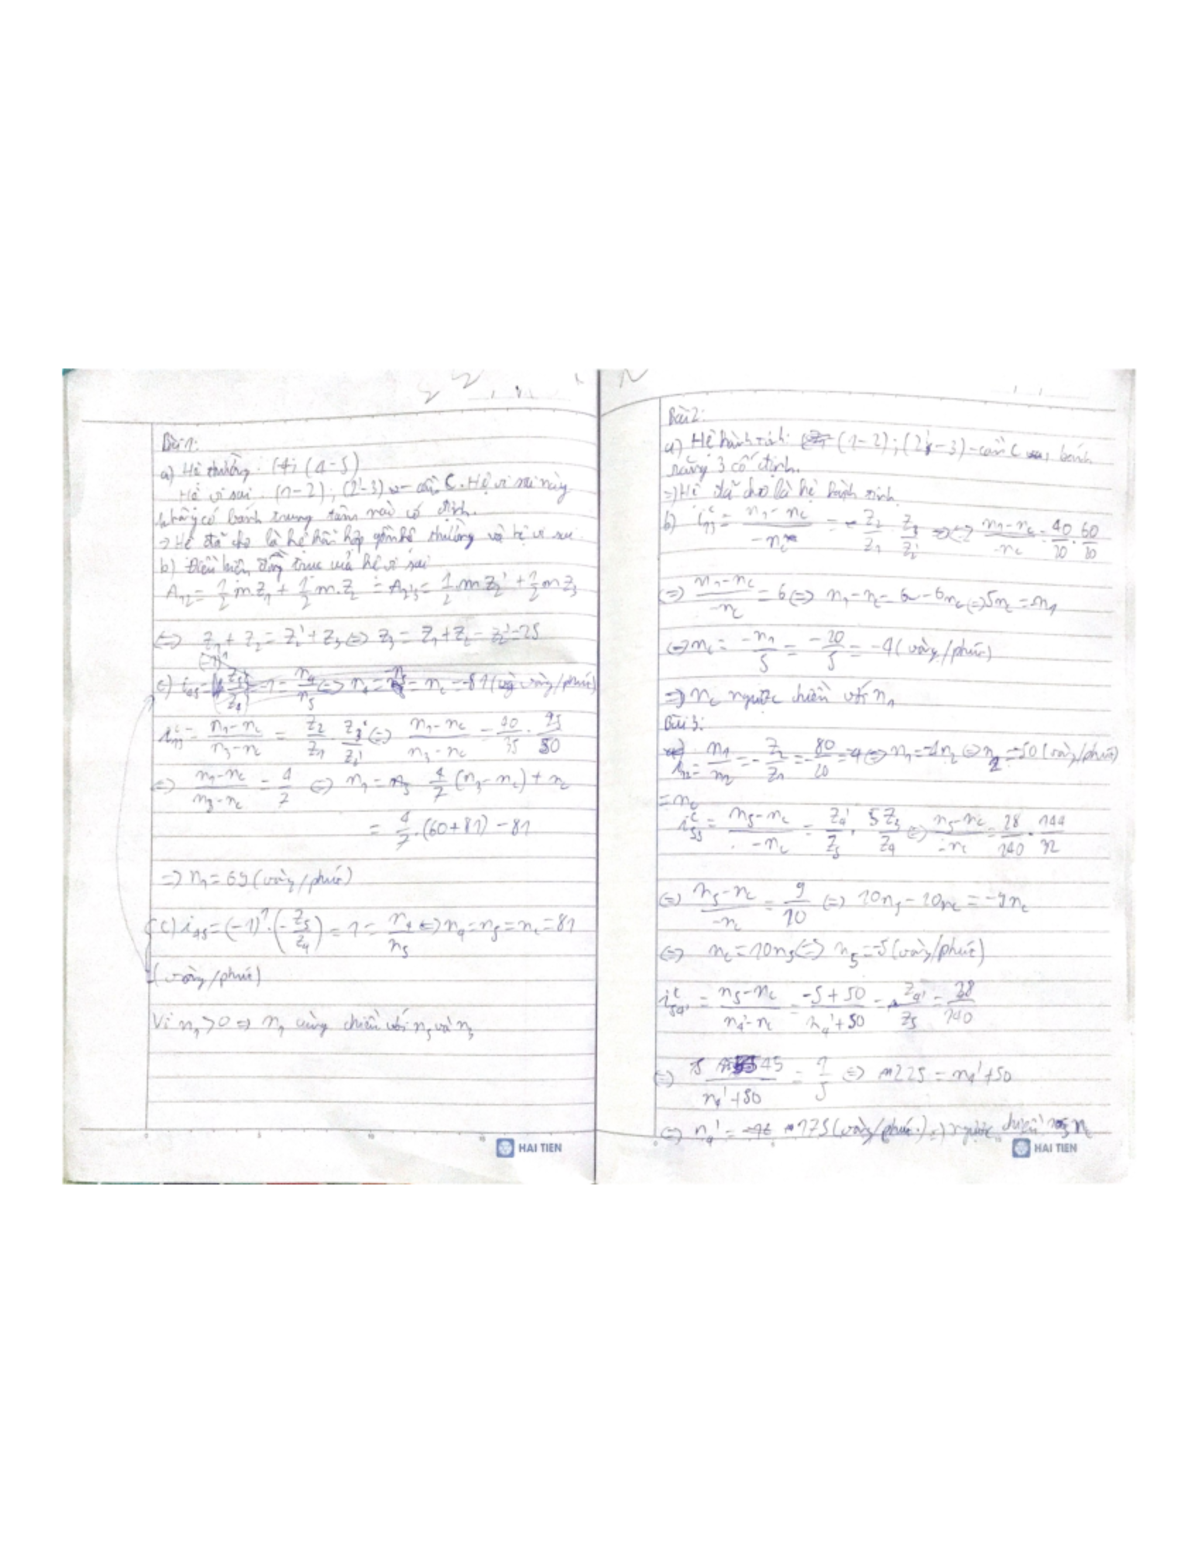 Bài 1:
a) Hệ thường: (4; (4-5)
Hệ vi sai: (1-2); (2'-3) - cần C. Hệ vi sai này
không có bánh trung tâm nào cố định.
⇒ Hệ đã cho là hệ hỗn hợp gồm hệ thường và hệ vi sai
b) Điều kiện đồng trục của hệ vi sai
A12 = 1/2 mZ1 + 1/2 m.Z2 = A2'3 = 1/2 mZ2' + 1/2 mZ3
⇔ Z1 + Z2 = Z2' + Z3 ⇔ Z3 = Z1 + Z2 - Z2' = 25
= 1 = n4/n5 ⇔ = nc = -81 (vòng/phút)
i13^c = (n1 - nc)/(n3 - nc) = Z2/Z1 . Z3/Z2' ⇔ (n1 - nc)/(n3 - nc) = 40/35 . 25/50
⇔ (n1 - nc)/(n3 - nc) = 4/7 ⇔ n1 = 4/7 (n3 - nc) + nc
= 4/7 . (60 + 81) - 81
⇒ n1 = 69 (vòng/phút)
c) i45 = (-1)^1 . (-Z5/Z4) = 1 = n4/n5 ⇔ n4 = n5 = nc = 81
(vòng/phút)
Vì n1 > 0 ⇒ n1 cùng chiều với n5 và n3
HAI TIEN
Bài 2:
a) Hệ hành tinh: (1-2); (2'-3) - cần C, bánh
răng 3 cố định.
⇒ Hệ đã cho là hệ hành tinh
b) i13^c = (n1 - nc)/(-nc) = Z2/Z1 . Z3/Z2' ⇔ (n1 - nc)/(-nc) = 40/20 . 60/20
⇔ (n1 - nc)/(-nc) = 6 ⇔ n1 - nc = - 6nc ⇔ 5nc = n1
⇔ nc = -n1/5 = -20/5 = -4 (vòng/phút)
⇒ nc ngược chiều với n1
Bài 3:
i12 = n1/n2 = -Z2/Z1 = -80/20 = -4 ⇔ n1 = -4n2 ⇔ n2 = -50 (vòng/phút)
= nc
i53^c = (n5 - nc)/(-nc) = Z4'/Z5 . Z3/Z4 ⇔ (n5 - nc)/(-nc) = 28/140 . 144/32
⇔ (n5 - nc)/(-nc) = 9/10 ⇔ 10n5 - 10nc = -9nc
⇔ nc = 10n5 ⇔ n5 = -5 (vòng/phút)
i54'^c = (n5 - nc)/(n4' - nc) = (-5 + 50)/(n4' + 50) = Z4'/Z5 = 28/140
⇔ 45/(n4' + 50) = 1/5 ⇔ 225 = n4' + 50
⇔ n4' = 175 (vòng/phút) ⇒ ngược chiều
HAI TIEN